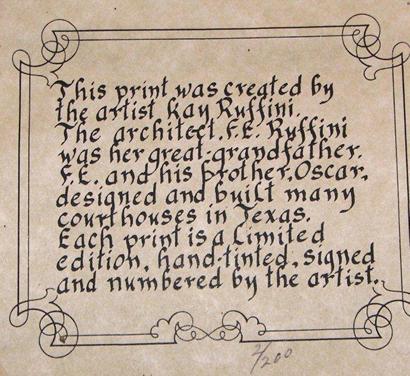 This print was created by
the artist Kay Ruffini.
The architect, F.E. Ruffini
was her great-grandfather.
F.E. and his brother, Oscar,
designed and built many
courthouses in Texas.
Each print is a limited
edition, hand-tinted, signed
and numbered by the artist.
2/200